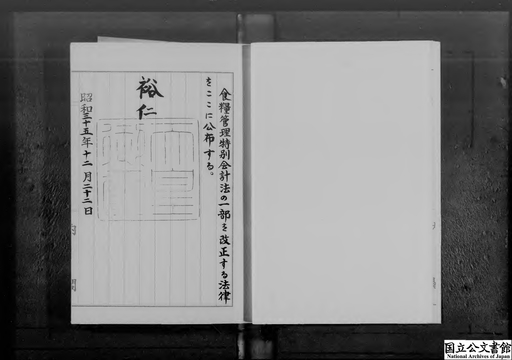 食糧管理特別会計法の一部を改正する法律
をここに公布する。
裕仁
昭和三十五年十二月二十二日
国立公文書館
National Archives of Japan